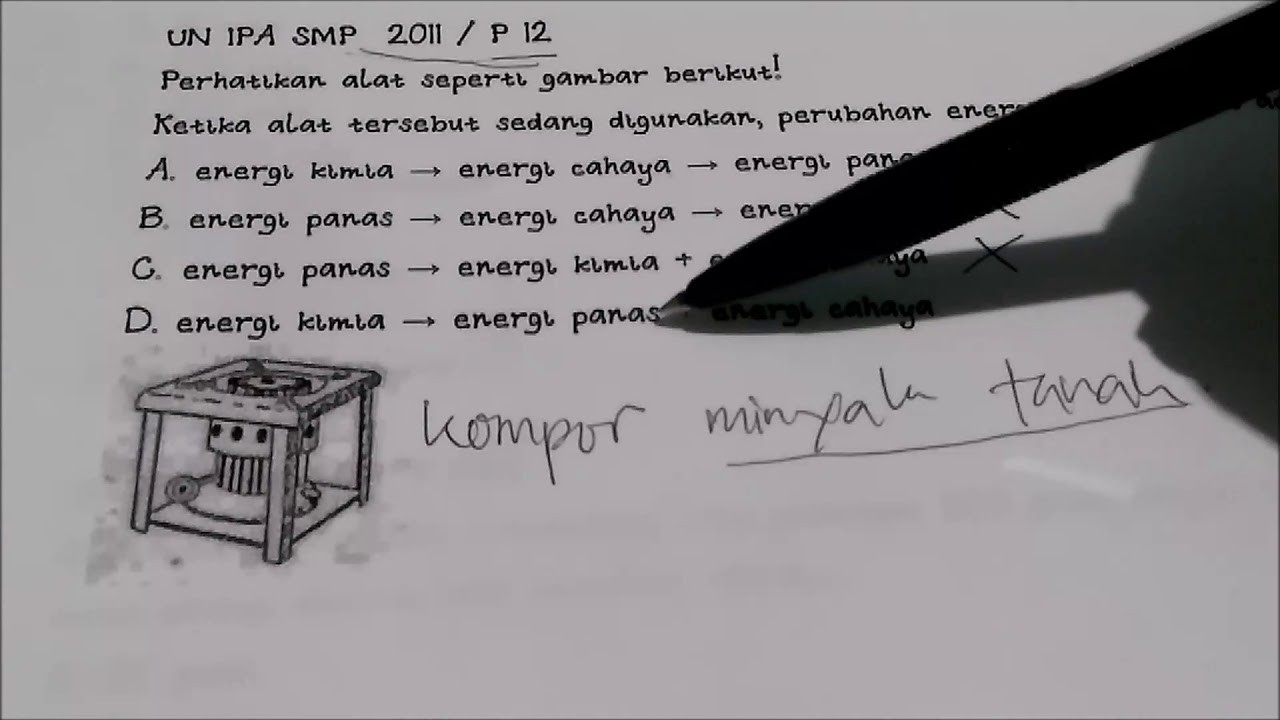 UN IPA SMP 2011 / P 12
Perhatikan alat seperti gambar berikut!
Ketika alat tersebut sedang digunakan, perubahan
A. energi kimia → energi cahaya → energi
B. energi panas → energi cahaya →
C. energi panas → energi kimia +
D. energi kimia → energi panas energi cahaya
kompor minyak tanah